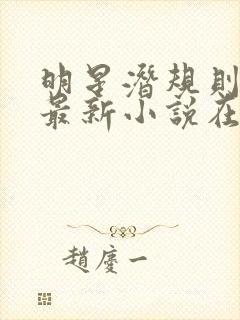 明星潛規則
最新小說在
趙慶一